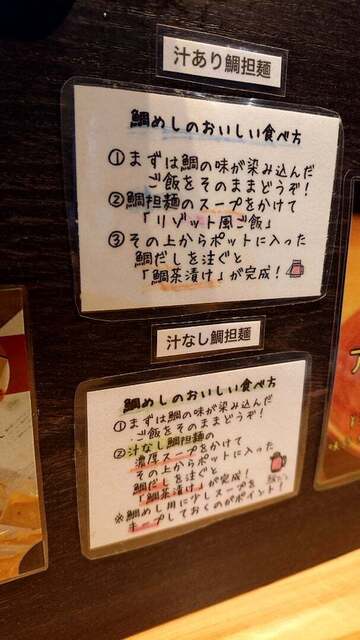 汁あり鯛担麺
鯛めしのおいしい食べ方
①まずは鯛の味が染み込んだ
ご飯をそのままどうぞ!
②鯛担麺のスープをかけて
「リゾット風ご飯」
③その上からポットに入った
鯛だしを注ぐと
「鯛茶漬け」が完成!
汁なし鯛担麺
鯛めしのおいしい食べ方
①まずは鯛の味が染み込んだ
ご飯をそのままどうぞ!
②汁なし鯛担麺の
濃厚スープをかけて
その上からポットに入った
鯛だしを注ぐと
「鯛茶漬け」が完成!
※鯛めし用に少しスープを
キープしておくのがポイント!